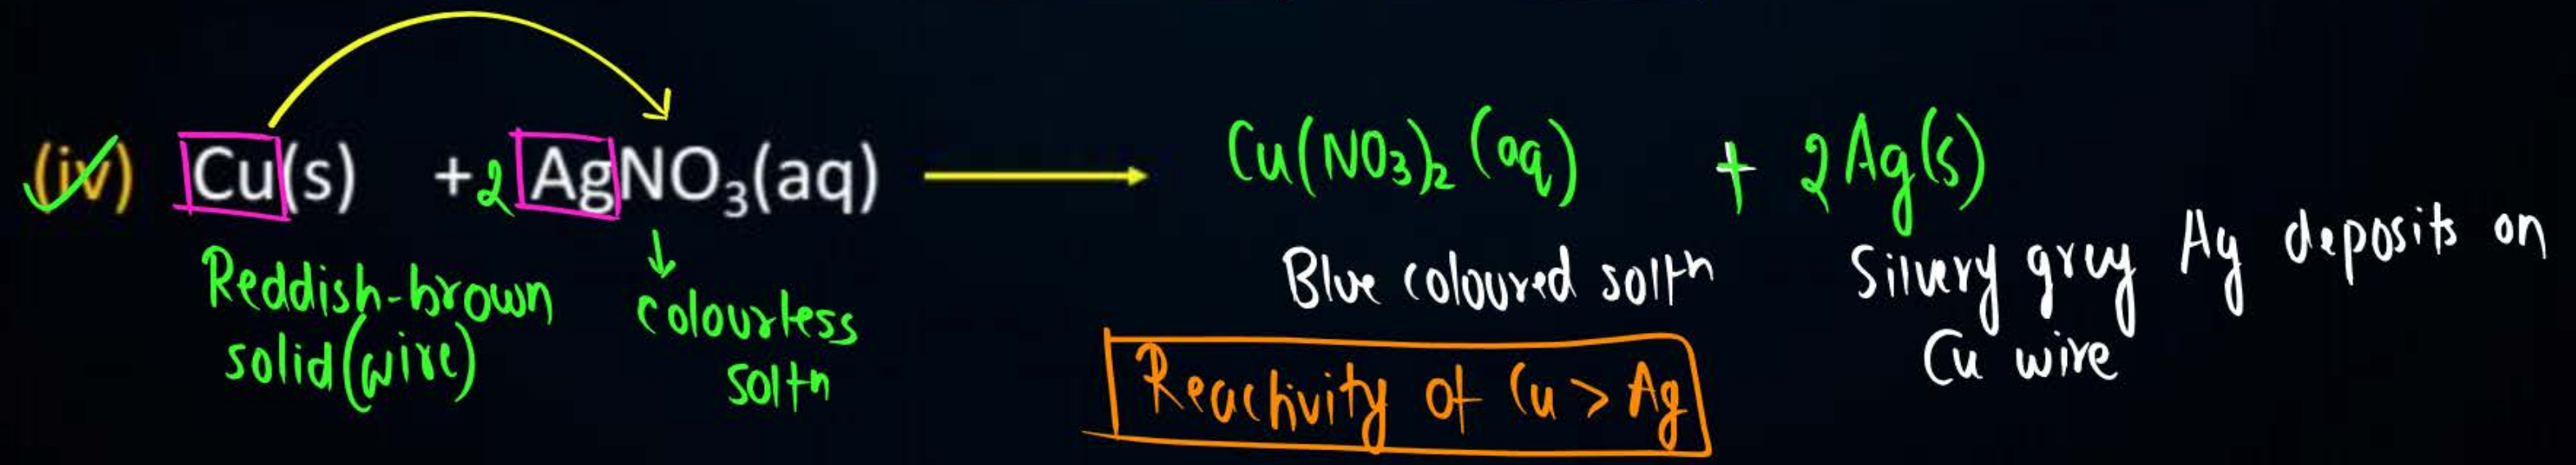 (iv) Cu(s) + 2 AgNO₃(aq) ⟶ Cu(NO₃)₂ (aq) + 2Ag(s)
Reddish-brown
solid (wire)
↓
colourless
soltn
Blue coloured soltn
Silvery grey Ag deposits on
Cu wire
Reactivity of Cu > Ag